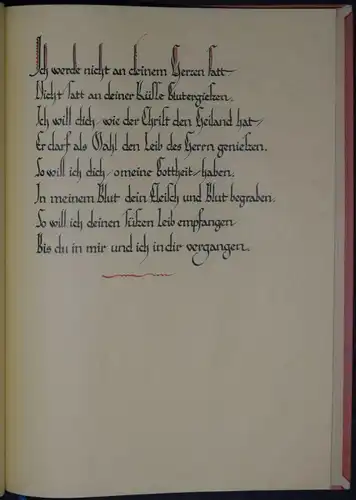 Ich werde nicht an deinem Herzen satt
Nicht satt an deiner Küsse Glutergießen.
Ich will dich, wie der Christ den Heiland hat
Er darf als Mahl den Leib des Herrn genießen.
So will ich dich, o meine Gottheit, haben.
In meinem Blut dein Fleisch und Blut begraben.
So will ich deinen süßen Leib empfangen
Bis du in mir und ich in dir vergangen.